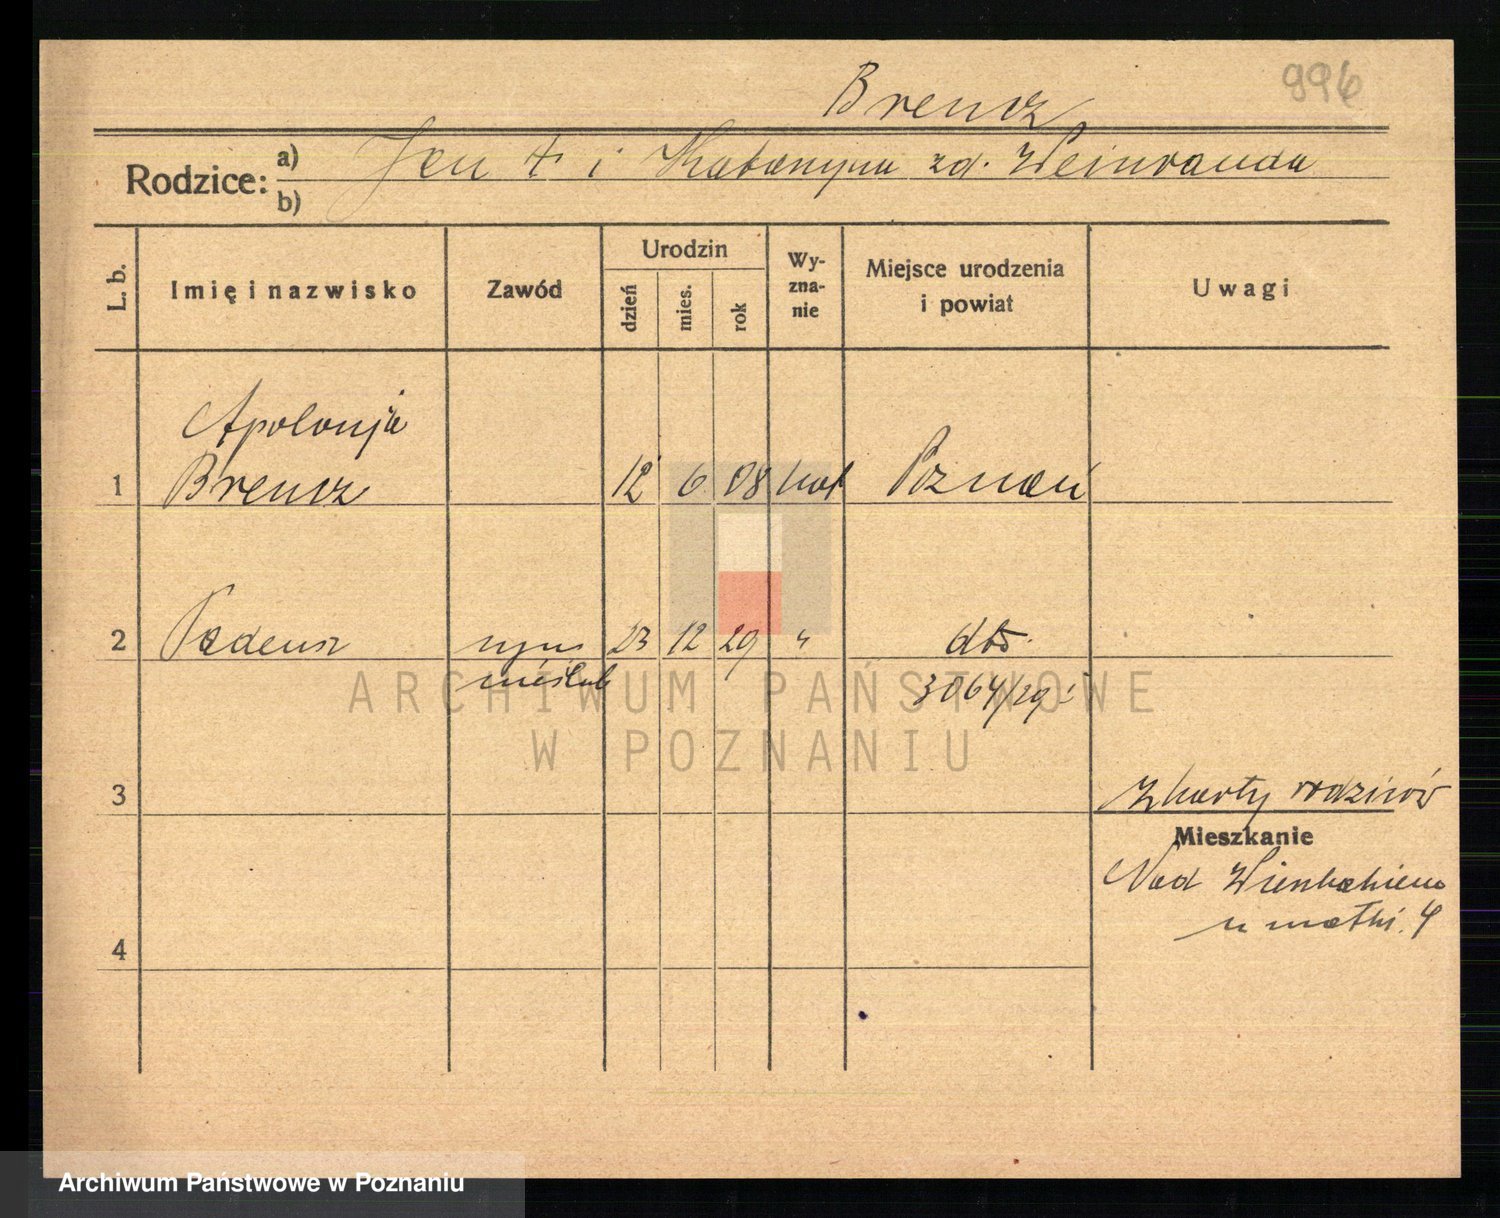 996
Brencz
Rodzice:
a) Jan + i Katarzyna zd. Weinranda
b)
L. b.
Imię i nazwisko
Zawód
Urodzin
dzień
mies.
rok
Wy-
zna-
nie
Miejsce urodzenia
i powiat
Uwagi
Apolonja
1 Brencz 12 6 08 kat Poznań
2 Tadeusz syn 23 12 29 " dto.
nieślub 3064/29
ARCHIWUM PAŃSTWOWE
W POZNANIU
3
z karty rodziców
Mieszkanie
Nad Wierzbakiem
u matki. 4
4
Archiwum Państwowe w Poznaniu